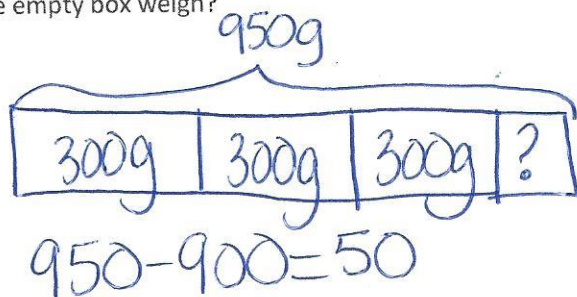 e empty box weigh?
950g
300g 300g 300g ?
950-900=50